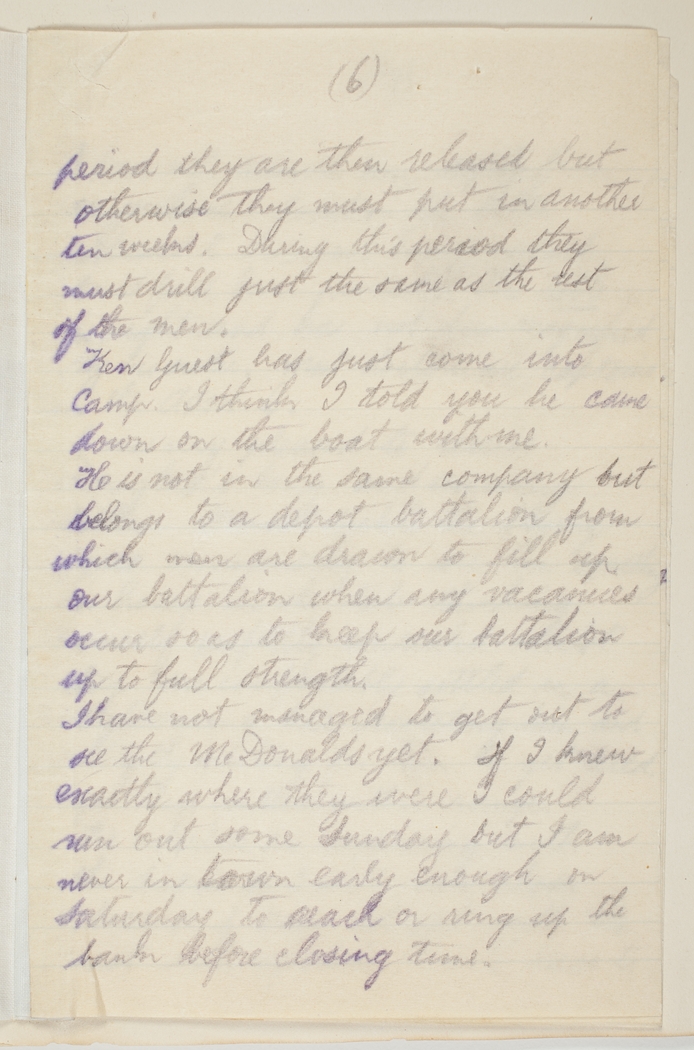 (6)
period they are then released but
otherwise they must put in another
ten weeks. During this period they
must drill just the same as the rest
of the men.
Ken Guest has just come into
Camp. I think I told you he came
down on the boat with me.
He is not in the same company but
belongs to a depot battalion from
which men are drawn to fill up
our battalion when any vacancies
occur so as to keep our battalion
up to full strength.
I have not managed to get out to
see the McDonalds yet. If I knew
exactly where they were I could
run out some Sunday but I am
never in town early enough on
Saturday to reach or ring up the
bank before closing time.